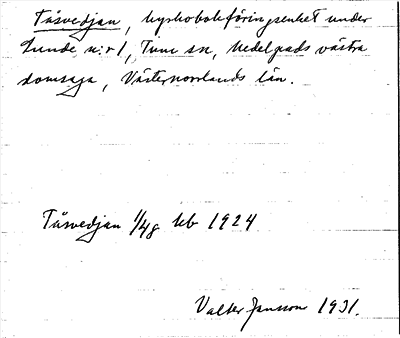 Tåsvedjan, kyrkobokföringsenhet under
Lunde n:r 1, Tuna sn, Medelpads västra
domsaga, Västernorrlands län.
Tåsvedjan 1/48 kb 1924
Valter Jansson 1931.